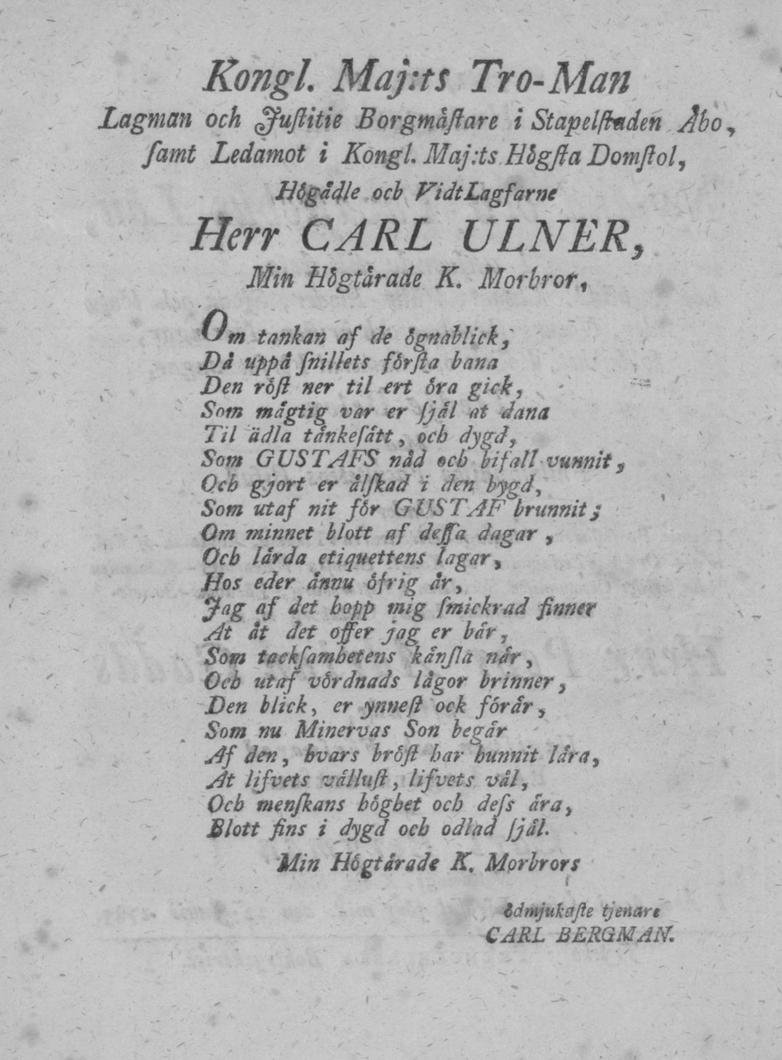 Kongl. Maj:ts Tro-Man
Lagman och Juſtitie Borgmåſtare i Stapelſtaden Åbo,
ſamt Ledamot i Kongl. Maj:ts Högſta Domſtol,
Högådle och VidtLagfarne
Herr CARL ULNER,
Min Högtårade K. Morbror,
Om tankan af de ögnablick,
Då uppå ſnillets förſta bana
Den röſt ner til ert öra gick,
Som mågtig var er ſjål at dana
Til ådla tånkeſått, och dygd,
Som GUSTAFS nåd och bifall vunnit,
Och gjort er ålſkad i den bygd,
Som utaf nit för GUSTAF brunnit;
Om minnet blott af deſſa dagar,
Och lårda etiquettens lagar,
Hos eder ånnu öfrig år,
Jag af det hopp mig ſmickrad finner
At åt det offer jag er bår,
Som tackſamhetens kånſla når,
Och utaf vördnads lågor brinner,
Den blick, er ynneſt ock förår,
Som nu Minervas Son begår
Af den, hvars bröſt har hunnit låra,
At lifvetsålluſt, lifvets vål,
Och menſkans höghet och deſs åra,
Blott fins i dygd och odlad ſjål.
Min Högtårade K. Morbrors
ödmjukaſte tjenare
CARL BERGMAN.